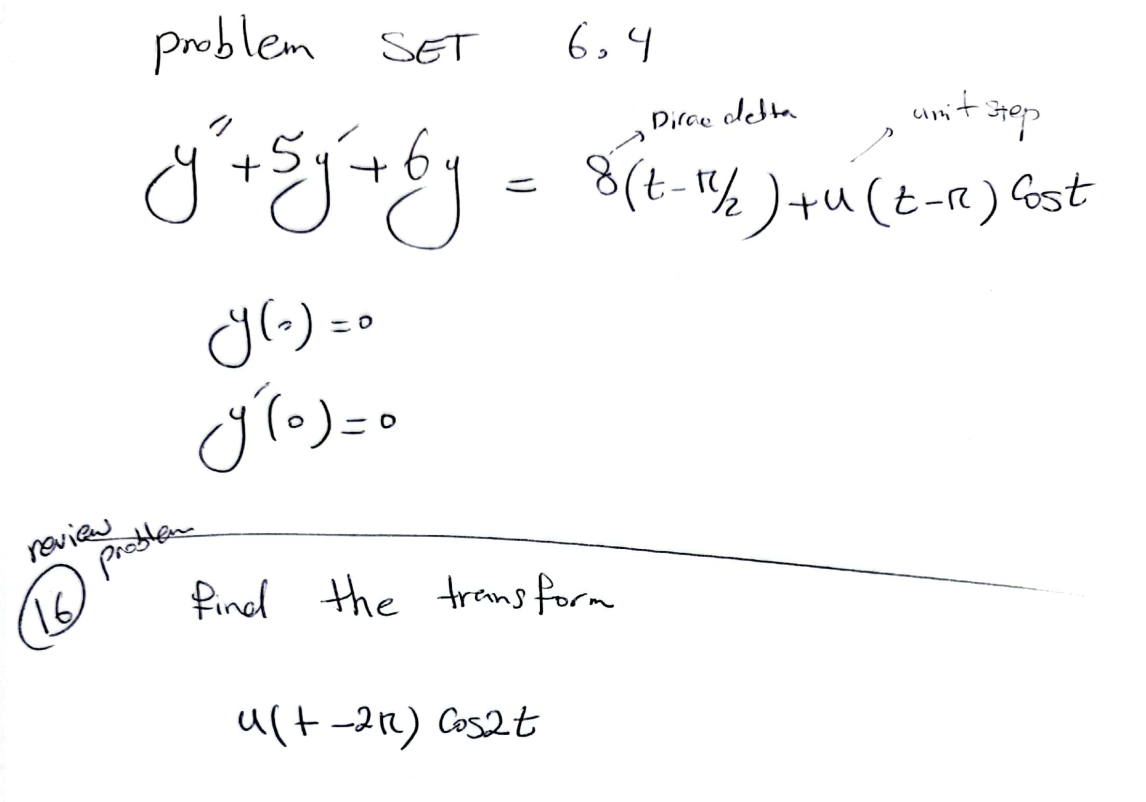 problem SET 6.4
Dirac delta
unit step
y" + 5y' + 6y = δ(t-π/2) + u(t-π) Cost
y(0) = 0
y'(0) = 0
review problem
16 find the transform
u(t-2π) Cos2t